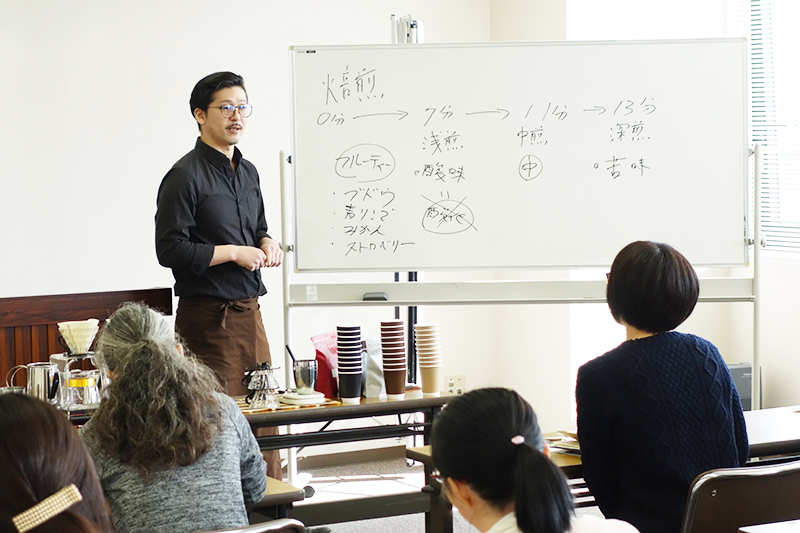 焙煎
0分 → 7分 → 11分 → 13分
浅煎 中煎 深煎
フルーティー 酸味 中 苦味
・ブドウ
・青りんご 酸化
・みかん
・ストロベリー